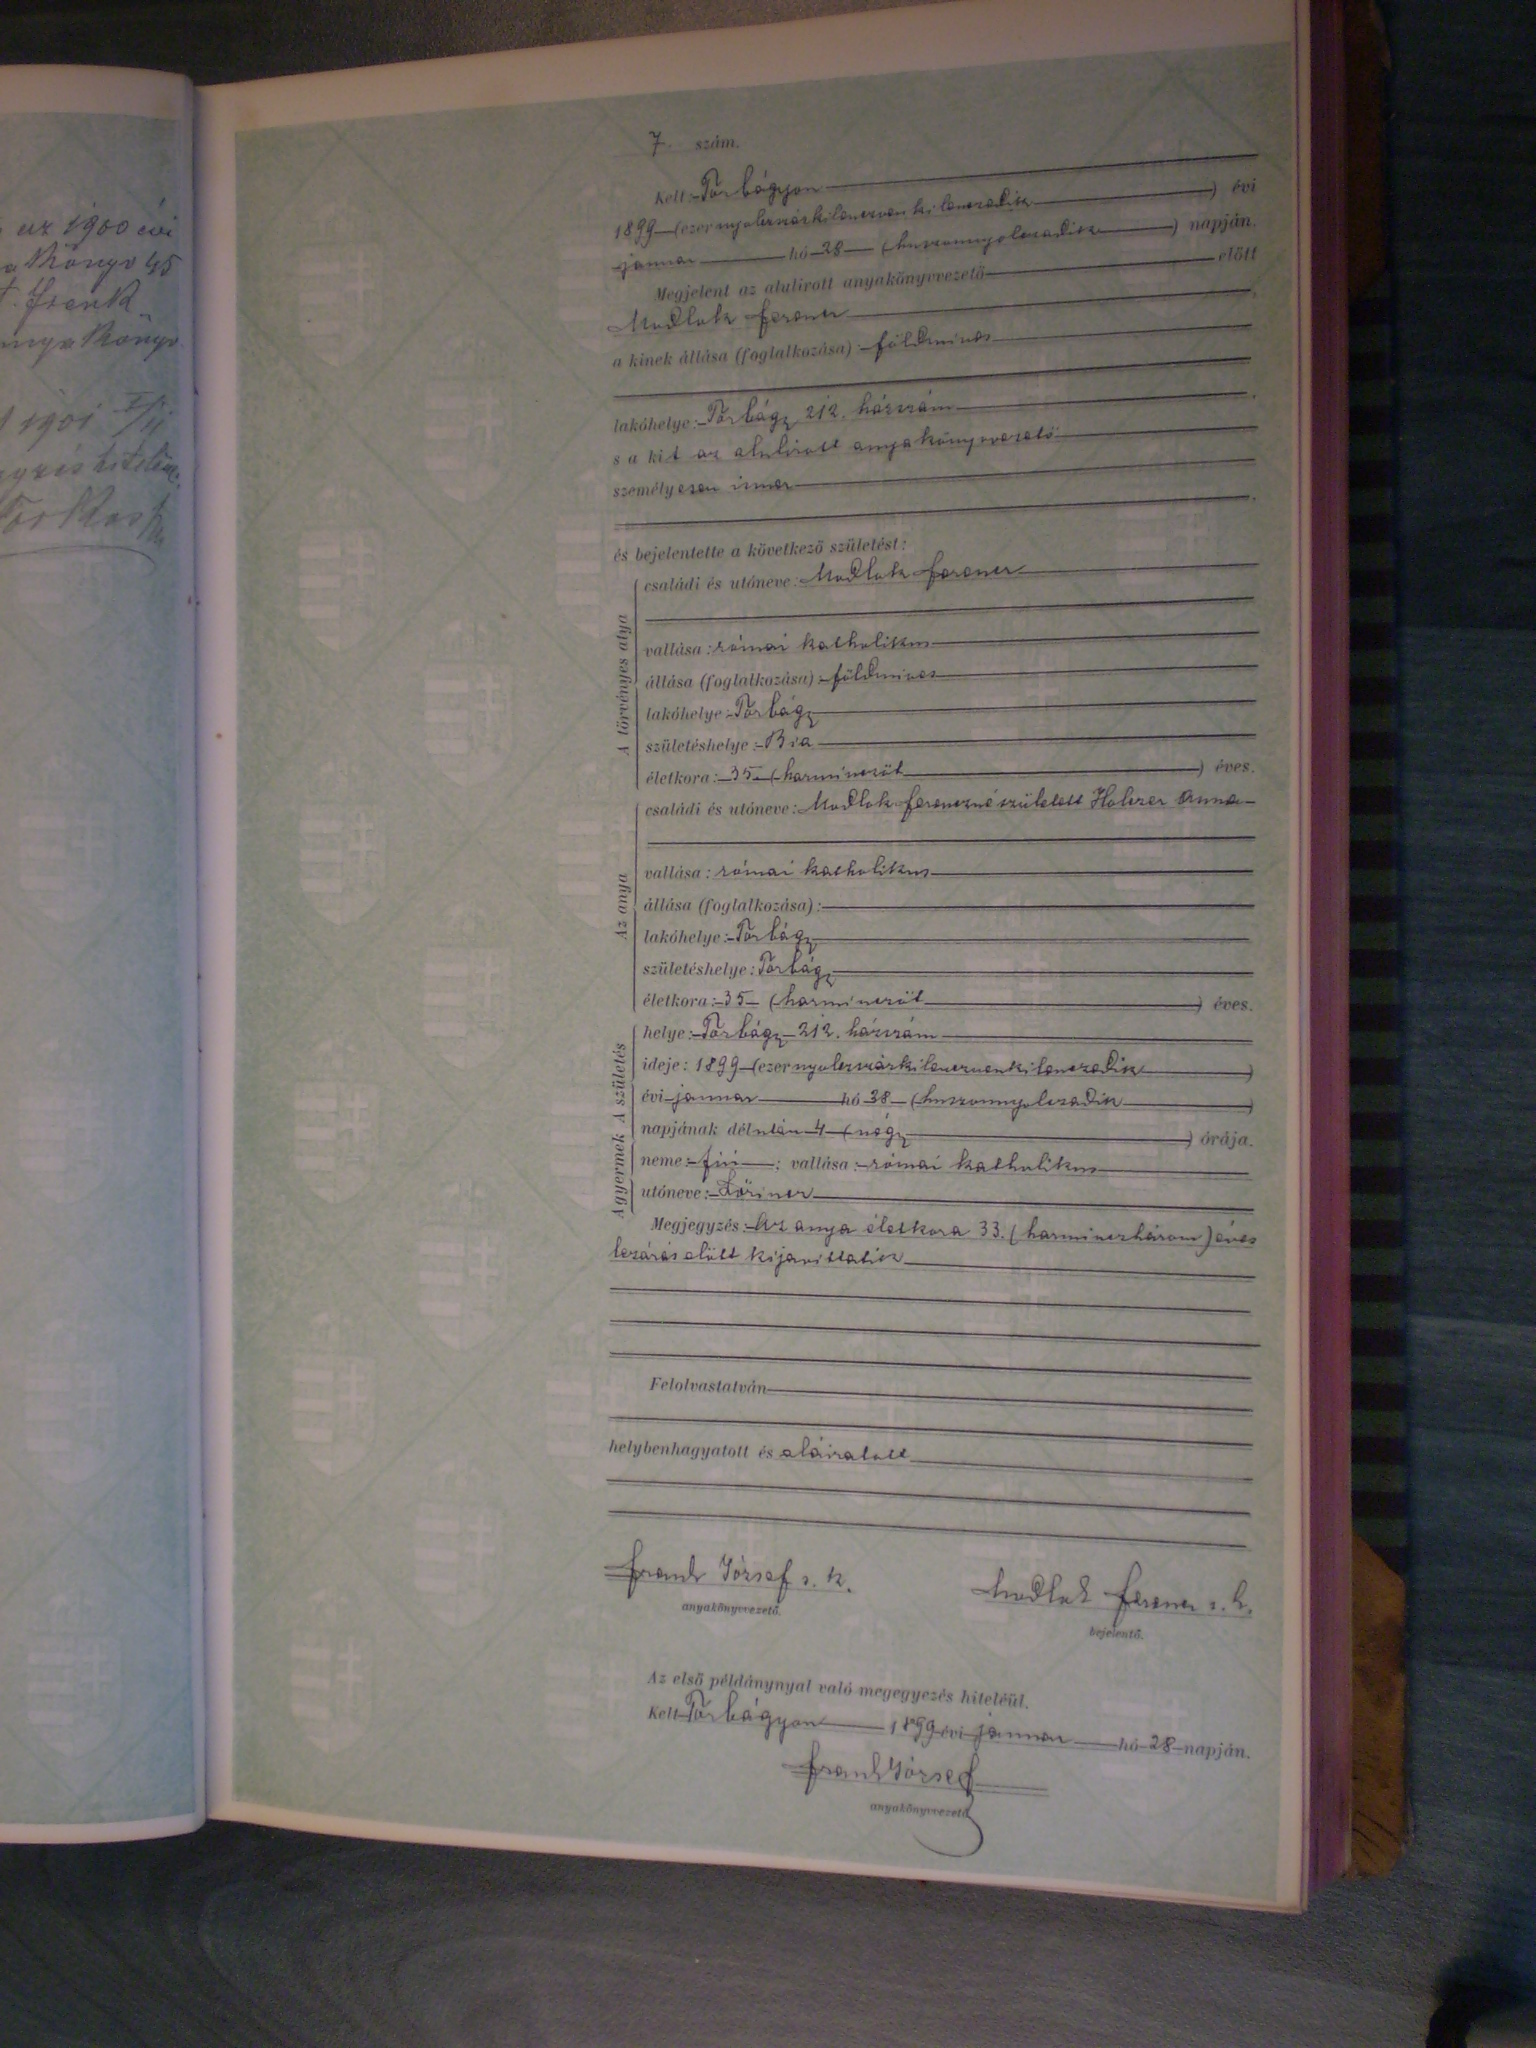 az 1900 évi
Könyv 45
Frank
1901
7. szám.
Kelt: Törbágyon
1899 (ezernyolczszázkilenczvenkilenczedik) évi
január hó 28 (huszonnyolczadik) napján.
Megjelent az alulírott anyakönyvvezető előtt
Modlok Ferencz
a kinek állása (foglalkozása): földmíves
lakóhelye: Törbágy 212. házszám
s a kit az alulirott anyakönyvvezető
személyesen ismer
és bejelentette a következő születést:
A törvényes atya
családi és utóneve: Modlok Ferencz
vallása: római katholikus
állása (foglalkozása): földmíves
lakóhelye: Törbágy
születéshelye: Bia
életkora: 35 (harminczöt) éves.
Az anya
családi és utóneve: Modlok Ferenczné született Holczer Anna
vallása: római katholikus
állása (foglalkozása):
lakóhelye: Törbágy
születéshelye: Törbágy
életkora: 35 (harminczöt) éves.
A születés
helye: Törbágy 212. házszám
ideje: 1899 (ezernyolczszázkilenczvenkilenczedik)
évi január hó 28 (huszonnyolczadik)
napjának délután 4 (négy) órája.
A gyermek
neme: fiú; vallása: római katholikus
utóneve: Lőrincz
Megjegyzés: Az anya életkora 33. (harminczhárom) éves
lezárás előtt kijavittatik
Felolvastatván
helybenhagyatott és aláiratott
Frank József s. k.
anyakönyvvezető.
Modlok Ferencz s. k.
bejelentő.
Az első példánynyal való megegyezés hiteléül.
Kelt Törbágyon 1899 évi január hó 28 napján.
Frank József
anyakönyvvezető